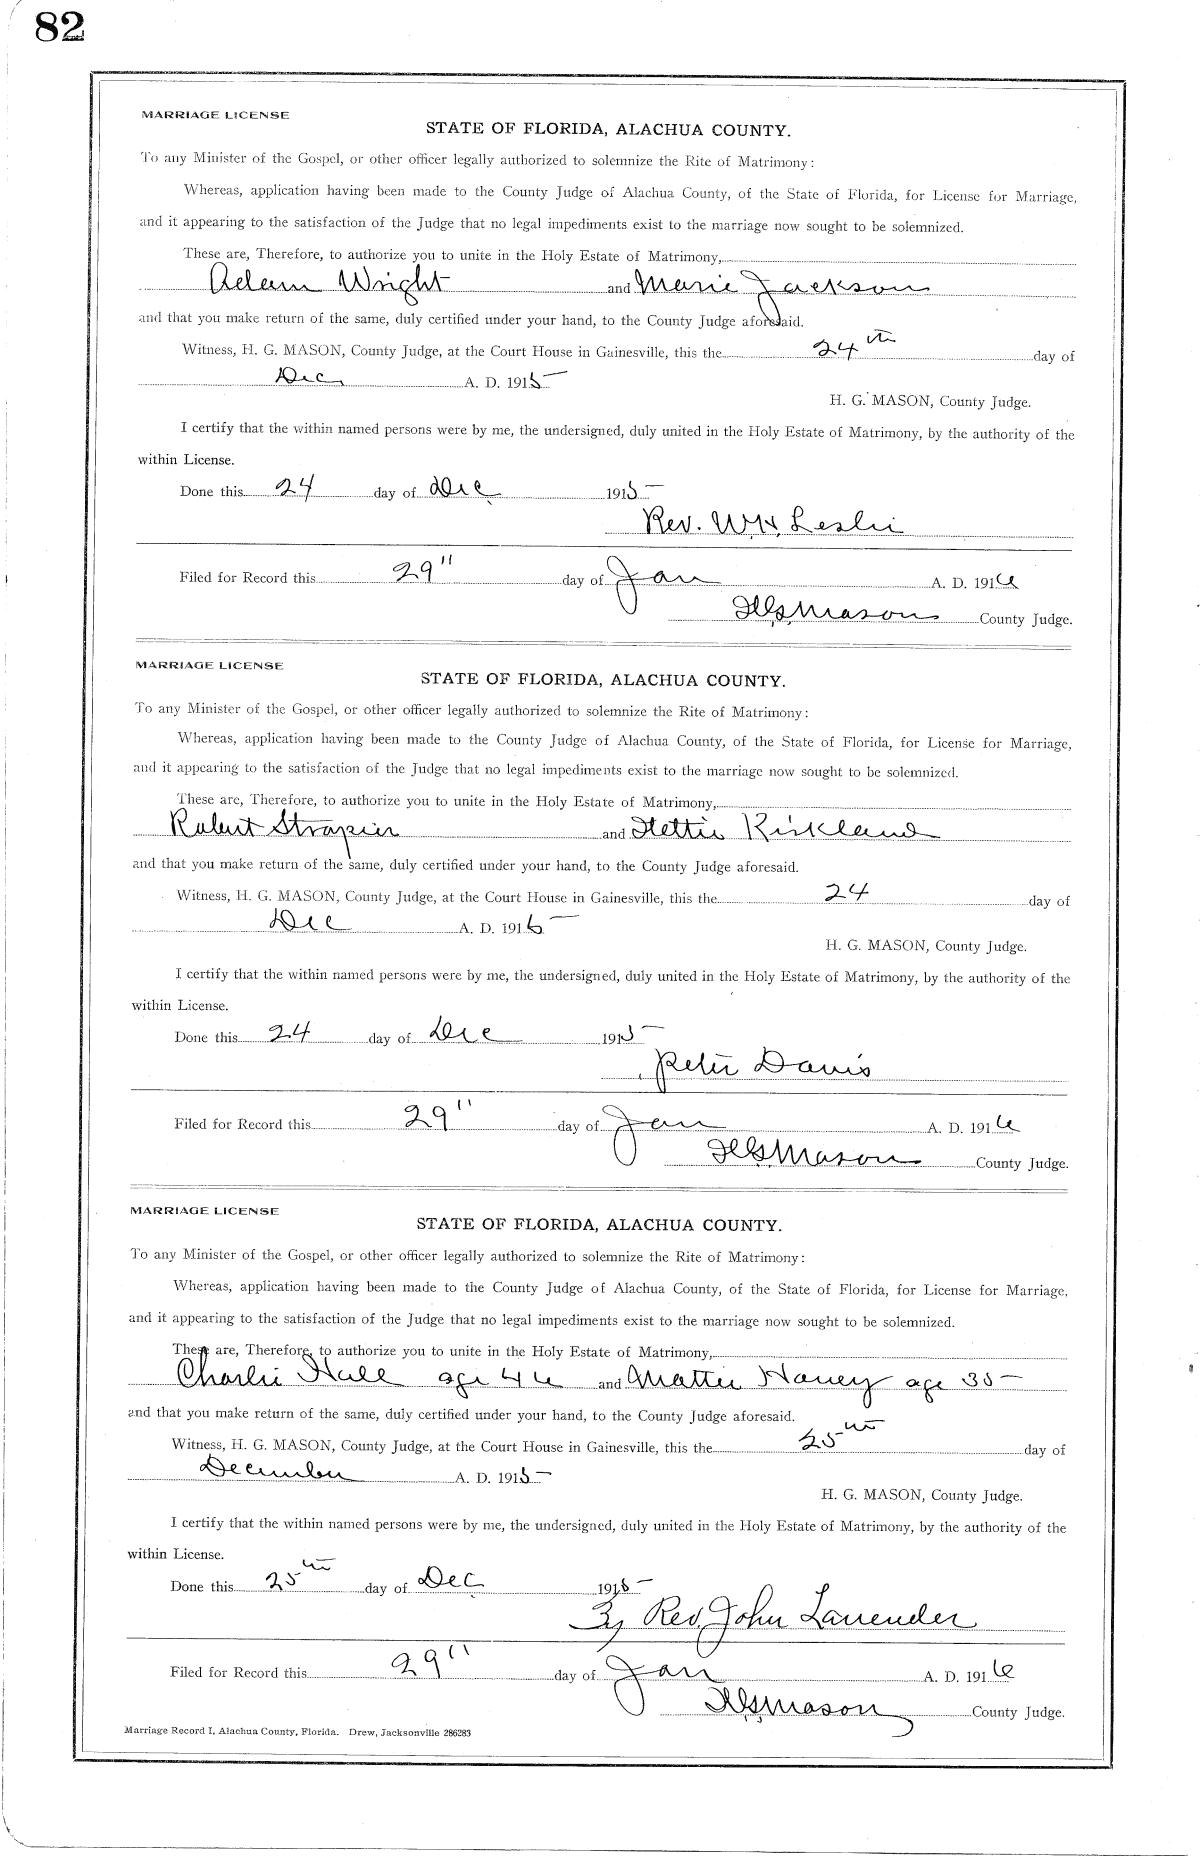 82
MARRIAGE LICENSE
STATE OF FLORIDA, ALACHUA COUNTY.
To any Minister of the Gospel, or other officer legally authorized to solemnize the Rite of Matrimony:
Whereas, application having been made to the County Judge of Alachua County, of the State of Florida, for License for Marriage,
and it appearing to the satisfaction of the Judge that no legal impediments exist to the marriage now sought to be solemnized.
These are, Therefore, to authorize you to unite in the Holy Estate of Matrimony,
Adam Wright and Marie Jackson
and that you make return of the same, duly certified under your hand, to the County Judge aforesaid.
Witness, H. G. MASON, County Judge, at the Court House in Gainesville, this the 24th day of
Dec A. D. 1915
H. G. MASON, County Judge.
I certify that the within named persons were by me, the undersigned, duly united in the Holy Estate of Matrimony, by the authority of the
within License.
Done this 24 day of Dec 1915
Rev. Leslie
Filed for Record this 29" day of Jan A. D. 1916
H G Mason County Judge.
MARRIAGE LICENSE
STATE OF FLORIDA, ALACHUA COUNTY.
To any Minister of the Gospel, or other officer legally authorized to solemnize the Rite of Matrimony:
Whereas, application having been made to the County Judge of Alachua County, of the State of Florida, for License for Marriage,
and it appearing to the satisfaction of the Judge that no legal impediments exist to the marriage now sought to be solemnized.
These are, Therefore, to authorize you to unite in the Holy Estate of Matrimony,
Robert Strapier and Hettie Kirkland
and that you make return of the same, duly certified under your hand, to the County Judge aforesaid.
Witness, H. G. MASON, County Judge, at the Court House in Gainesville, this the 24 day of
Dec A. D. 1915
H. G. MASON, County Judge.
I certify that the within named persons were by me, the undersigned, duly united in the Holy Estate of Matrimony, by the authority of the
within License.
Done this 24 day of Dec 1915
Peter Davis
Filed for Record this 29" day of Jan A. D. 1916
H G Mason County Judge.
MARRIAGE LICENSE
STATE OF FLORIDA, ALACHUA COUNTY.
To any Minister of the Gospel, or other officer legally authorized to solemnize the Rite of Matrimony:
Whereas, application having been made to the County Judge of Alachua County, of the State of Florida, for License for Marriage,
and it appearing to the satisfaction of the Judge that no legal impediments exist to the marriage now sought to be solemnized.
These are, Therefore, to authorize you to unite in the Holy Estate of Matrimony,
Charlie Hall age 46 and Mattie Haney age 35
and that you make return of the same, duly certified under your hand, to the County Judge aforesaid.
Witness, H. G. MASON, County Judge, at the Court House in Gainesville, this the 25th day of
December A. D. 1915
H. G. MASON, County Judge.
I certify that the within named persons were by me, the undersigned, duly united in the Holy Estate of Matrimony, by the authority of the
within License.
Done this 25th day of Dec 1915
By Rev. John Lavender
Filed for Record this 29" day of Jan A. D. 1916
H G Mason County Judge.
Marriage Record I, Alachua County, Florida. Drew, Jacksonville 286283